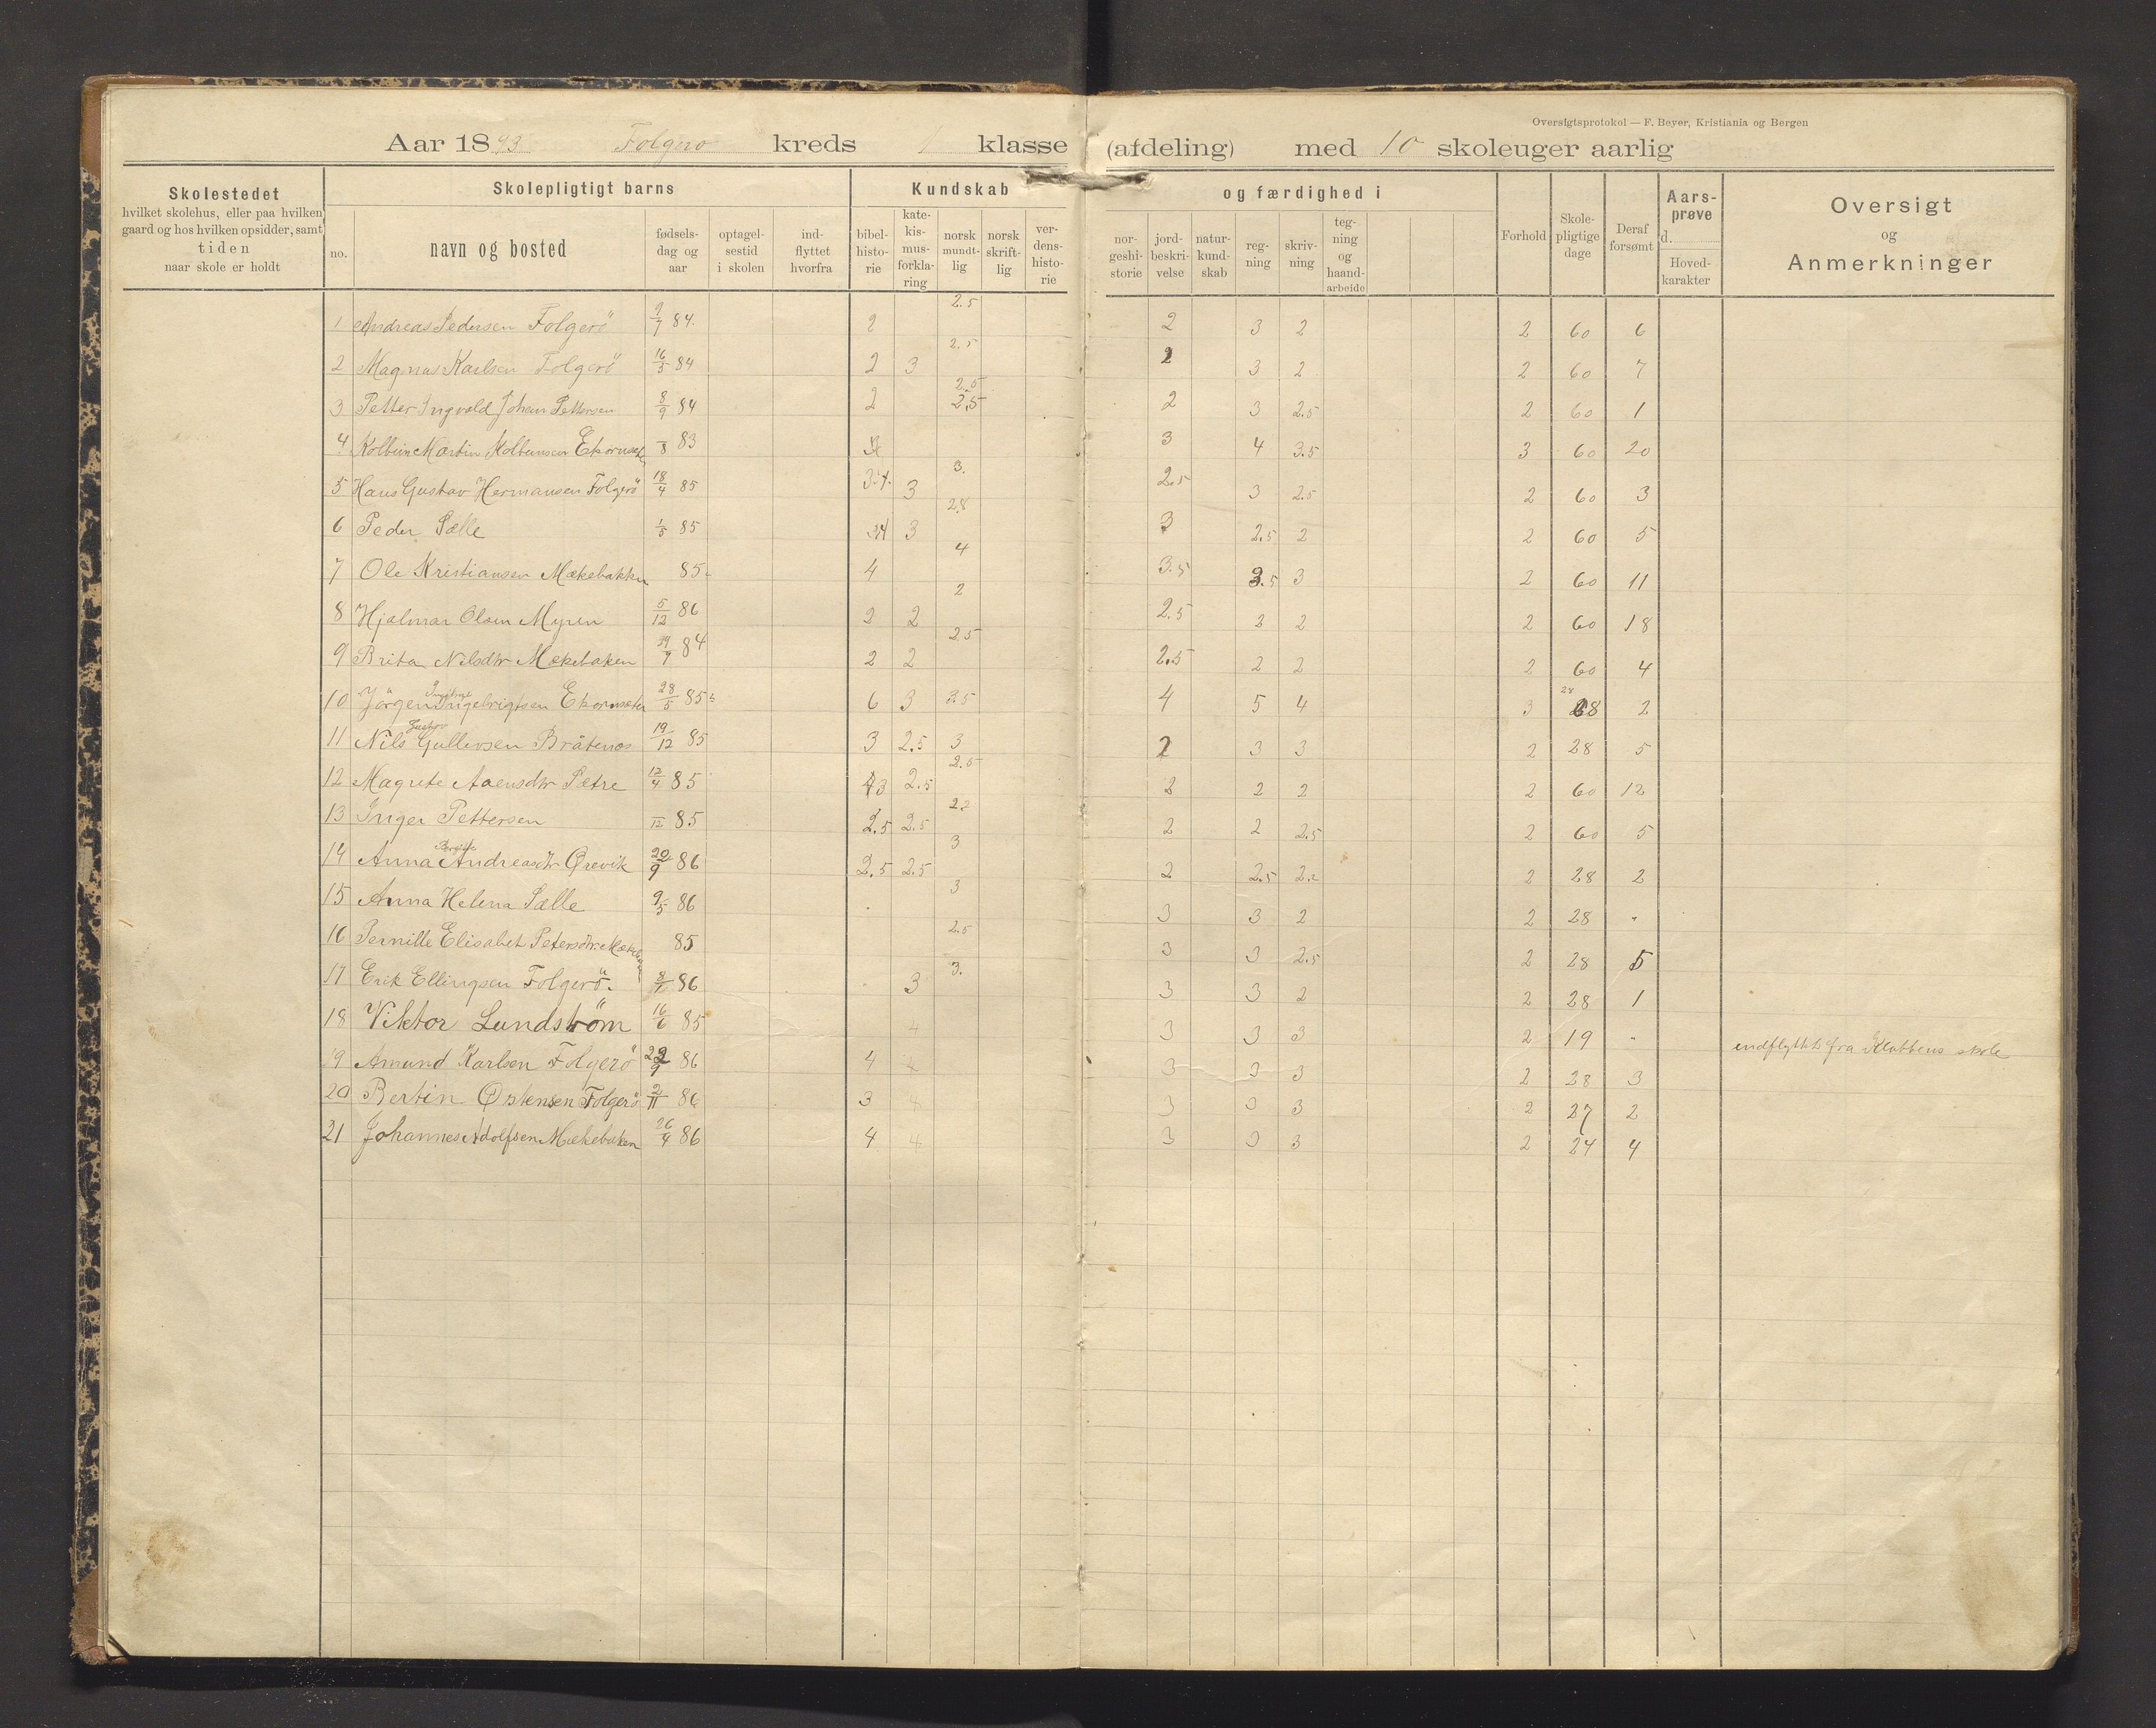 Oversigtsprotokol — F. Beyer, Kristiania og Bergen
Aar 1893 Folgerø kreds 1 klasse (afdeling) med 10 skoleuger aarlig
Skolestedet
hvilket skolehus, eller paa hvilken
gaard og hos hvilken opsidder, samt
tiden
naar skole er holdt
Skolepligtigt barns
no.
navn og bosted
fødsels-
dag og
aar
optagel-
sestid
i skolen
ind-
flyttet
hvorfra
Kundskab og færdighed i
bibel-
histo-
rie
kate-
kis-
mus-
forkla-
ring
norsk
mundt-
lig
norsk
skrift-
lig
ver-
dens-
histo-
rie
nor-
geshi-
storie
jord-
beskri-
velse
natur-
kund-
skab
reg-
ning
skriv-
ning
teg-
ning
og
haand-
arbeide
Forhold
Skole-
pligtige
dage
Deraf
forsømt
Aars-
prøve
d.
Hoved-
karakter
Oversigt
og
Anmerkninger
1 Andreas Pedersen Folgerö 9/7 84. 2 2.5 2 3 2 2 60 6
2 Magnus Karlsen Folgerö 16/5 84 2 3 2.5 2 3 2 2 60 7
3 Petter Ingvald Johan Pettersen 8/9 84 2 2.5 2.5 2 3 2.5 2 60 1
4 Kolbein Martin Kolbeinsen /8 83 3 4 3.5 3 60 20
5 Hans Gustav Hermansen Folgerö 18/4 85 3 3. 2.5 3 2.5 2 60 3
6 Peder Sælle 1/5 85 3 2.8 3 2.5 2 2 60 5
7 Ole Kristiansen Mækebakken 85 4 4 3.5 3.5 3 2 60 11
8 Hjalmar Olsen Myren 5/12 86 2 2 2 2.5 2 2 2 60 18
9 Brita Nilsdtr Mækebaken /9 84 2 2 2.5 2.5 2 2 2 60 4
10 Jörgen Ingebrigtsen Ekornsæter 28/5 85 6 3 3.5 4 5 4 3 28 2
11 Nils Gullevsen Bråtenes 19/12 85 3 2.5 3 2 3 3 2 28 5
12 Magrete Sætre 12/4 85 3 2.5 2.5 2 2 2 2 60 12
13 Inger Pettersen /12 85 2.5 2.5 2.2 2 2 2.5 2 60 5
14 Anna Andreasdtr Ørevik 20/9 86 2.5 2.5 3 2 2.5 2.2 2 28 2
15 Anna Helena Sælle 9/5 86 3 3 3 2 2 28 -
16 Pernille Elisabet Petersdtr. 85 2.5 3 3 2.5 2 28 5
17 Erik Ellingsen Folgerö. 86 3 3. 3 3 2 2 28 1
18 Viktor Lundström 16/6 85 4 3 3 3 2 19 - endflyttet fra Klubbens skole
19 Amund Karlsen Folgerö 86 4 4 3 3 3 2 28 3
20 Bertin Østensen Folgerö 2/11 86 3 4 3 3 3 2 27 2
21 Johannes Adolfsen Mækebaken 26/4 86 4 4 3 3 3 2 24 4